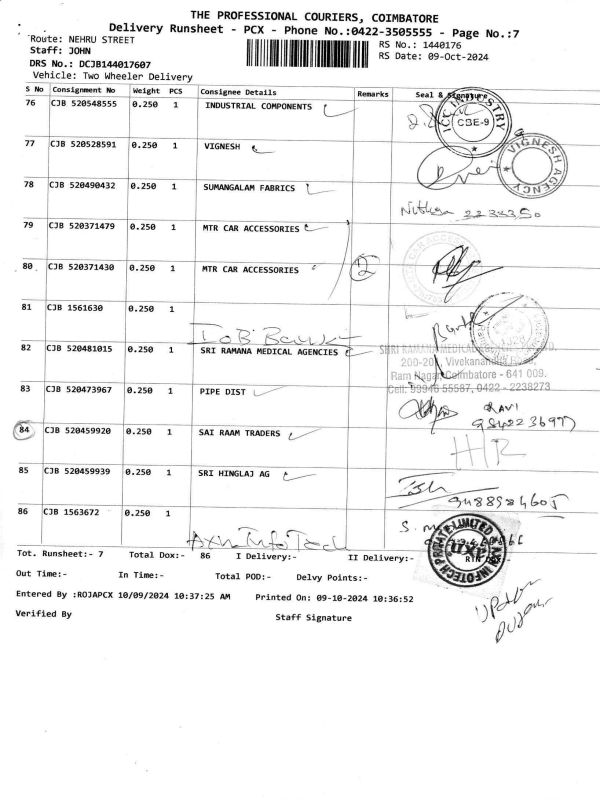 THE PROFESSIONAL COURIERS, COIMBATORE
Delivery Runsheet - PCX - Phone No.:0422-3505555 - Page No.:7
Route: NEHRU STREET
RS No.: 1440176
Staff: JOHN
RS Date: 09-Oct-2024
DRS No.: DCJB144017607
Vehicle: Two Wheeler Delivery
S No Consignment No Weight PCS Consignee Details Remarks Seal & Signature
76 CJB 520548555 0.250 1 INDUSTRIAL COMPONENTS
ICC INDUSTRY CBE-9
77 CJB 520528591 0.250 1 VIGNESH
VIGNESH AGENCY
78 CJB 520490432 0.250 1 SUMANGALAM FABRICS
79 CJB 520371479 0.250 1 MTR CAR ACCESSORIES
80 CJB 520371430 0.250 1 MTR CAR ACCESSORIES 2
81 CJB 1561630 0.250 1
82 CJB 520481015 0.250 1 SRI RAMANA MEDICAL AGENCIES
SRI RAMANA MEDICAL
200-20 Vivekananda
Ram Nagar, Coimbatore - 641 009.
Cell: 99946 55587, 0422 - 2238273
83 CJB 520473967 0.250 1 PIPE DIST
RAVI
84 CJB 520459920 0.250 1 SAI RAAM TRADERS
85 CJB 520459939 0.250 1 SRI HINGLAJ AG
86 CJB 1563672 0.250 1
AXN InfoTech
AXN INFOTECH PRIVATE LIMITED
Tot. Runsheet:- 7 Total Dox:- 86 I Delivery:- II Delivery:-
Out Time:- In Time:- Total POD:- Delvy Points:-
Entered By :ROJAPCX 10/09/2024 10:37:25 AM Printed On: 09-10-2024 10:36:52
Verified By Staff Signature